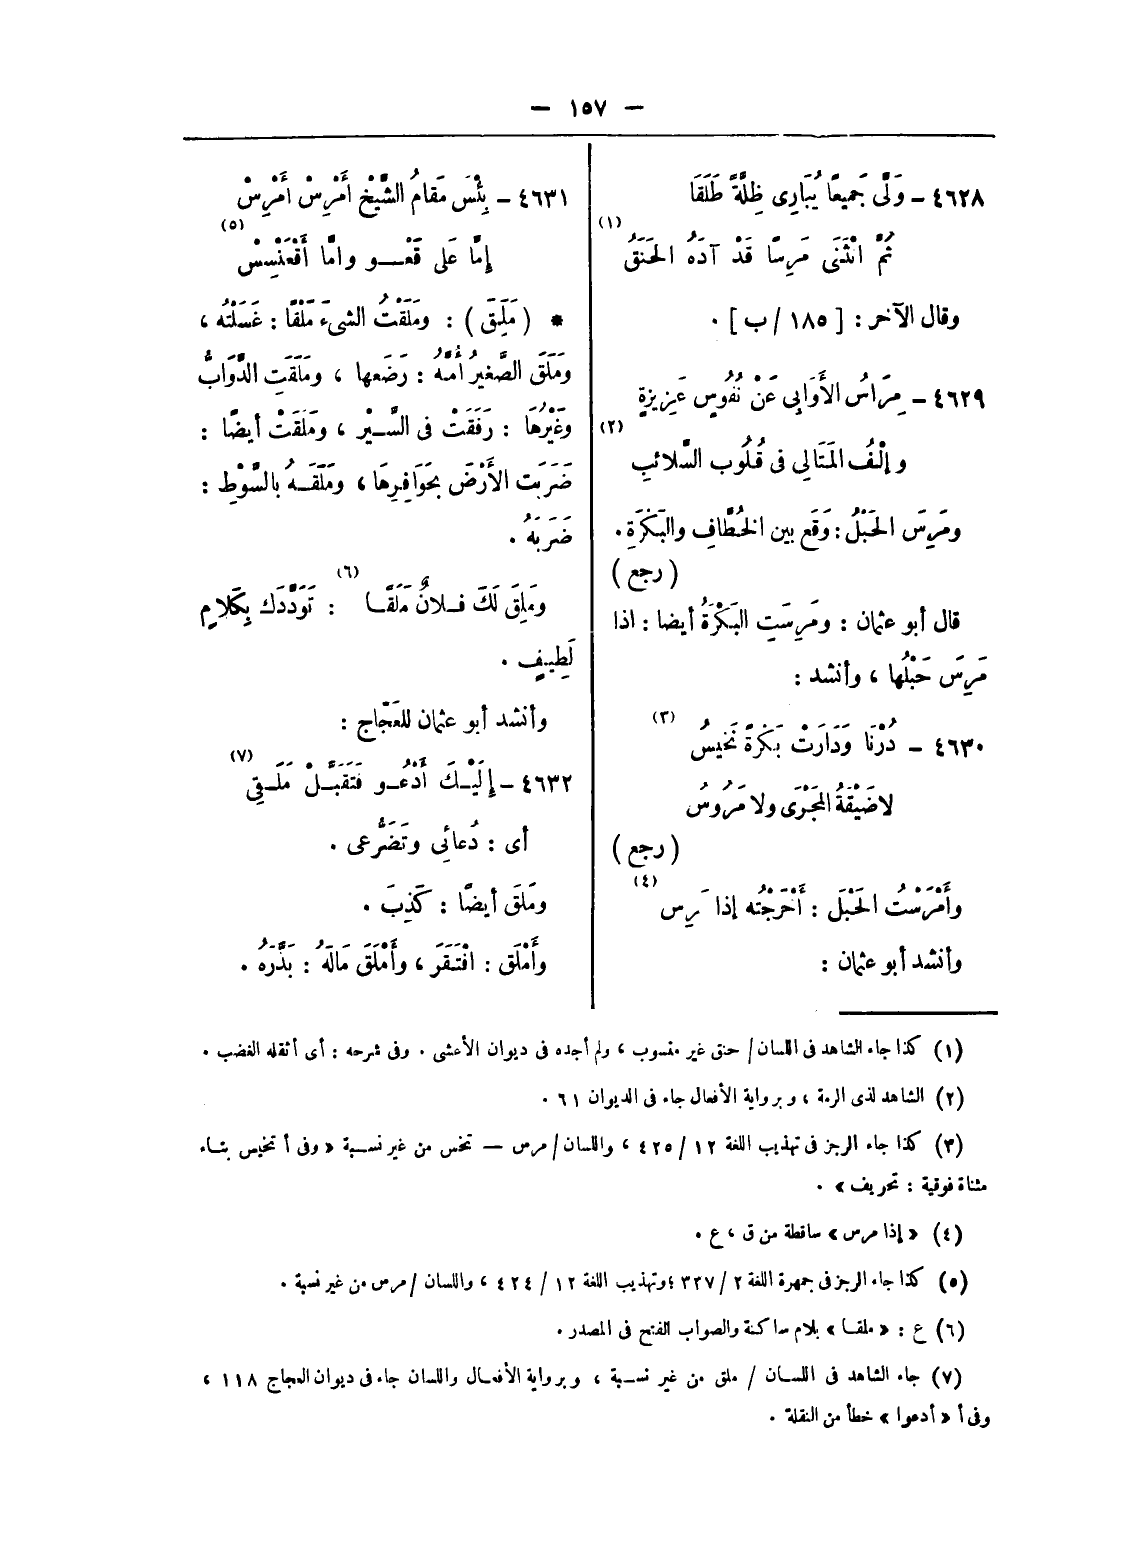 — ١٥٧ —
٤٦٢٨ - وَلَّى جَمِيعًا يُبَارِى ظِلَّهُ طَلَقَا
ثُمَّ انْثَنَى مَرِسًا قَدْ آدَهُ الحَنَقُ (١)
وقال الآخر : [ ١٨٥ / ب ] .
٤٦٢٩ - مِرَاسُ الأَوَابِى عَنْ نُفُوسٍ عَزِيزةٍ
وإلْفُ المَتَالِى فى قُلُوب السَّلائبِ (٢)
ومَرِسَ الحَبْلُ : وَقَع بين الخُطَّافِ والبَكَرَةِ .
( رجع )
قال أبو عثمان : ومَرِسَتِ البَكَرَةُ أيضا : اذا
مَرِسَ حَبْلُها ، وأنشد :
٤٦٣٠ - دُرْنَا وَدَارَتْ بَكْرَةٌ نَخِيسُ (٣)
لا ضَيْقَةُ المَجْرَى ولا مَرُوسُ
( رجع )
وأَمْرَسْتُ الحَبْلَ : أَخْرَجْتُه إذا مَرِس (٤)
وأنشد أبو عثمان :
٤٦٣١ - بِئْسَ مَقامُ الشَّيْخِ أَمْرِسْ أَمْرِسْ
إمَّا عَلى قَعْـــو وامَّا أقْعَنْسِسْ (٥)
* ( مَلِقَ ) : ومَلَقْتُ الشىءَ مَلْقًا : غَسَلْتُه ،
ومَلَقَ الصَّغيرُ أُمَّهُ : رَضَعها ، ومَلَقَتِ الدَّوابُّ
وغَيْرُهَا : رَفَقَتْ فى السَّـيْر ، ومَلَقَتْ أيضًا :
ضَرَبَت الأَرْضَ بحَوَافِرِهَا ، ومَلَقَـهُ بالسَّوْطِ :
ضَرَبَهُ .
ومَلِقَ لَكَ فـلانٌ مَلَقًـا (٦) : تَوَدَّدَك بِكَلامٍ
لَطِيفٍ .
وأنشد أبو عثمان للعَجّاج :
٤٦٣٢ - إلَيْـكَ أَدْعُـو فَتَقَبَّـلْ مَلَـقِى (٧)
أى : دُعائِى وتَضَرُّعى .
ومَلَقَ أيضًا : كَذِبَ .
وأَمْلَق : افْتَقَرَ ، وأَمْلَقَ مَالَهُ : بَذَّرَهُ .
(١) كذا جاء الشاهد فى اللسان / حنق غير منسوب ، ولم أجده فى ديوان الأعشى . وفى شرحه : أى أثقله الغضب .
(٢) الشاهد لذى الرمة ، وبرواية الأفعال جاء فى الديوان ٦١ .
(٣) كذا جاء الرجز فى تهذيب اللغة ١٢ / ٤٢٥ ، واللسان / مرس — نخس من غير نسـبة « وفى أ تخيس بتـاء
مثناة فوقية : تحريف » .
(٤) « إذا مرس » ساقطة من ق ، ع .
(٥) كذا جاء الرجز فى جمهرة اللغة ٢ / ٣٣٧ ؛ وتهذيب اللغة ١٢ / ٤٢٤ ، واللسان / مرس من غير نسبة .
(٦) ع : « ملقـا » بلام ساكنة والصواب الفتح فى المصدر .
(٧) جاء الشاهد فى اللسـان / ملق من غير نسـبة ، وبرواية الأفعـال واللسان جاء فى ديوان العجاج ١١٨ ،
وفى أ « أدعوا » خطأ من النقلة .